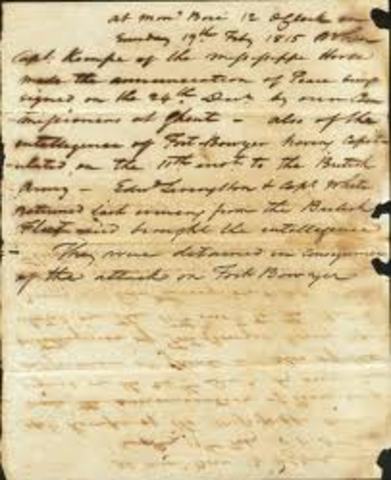 at Monr Bore 12 OClock on
Sunday 19th Feby 1815
Capt. Kempe of the Mississippi Horse
made the annunciation of Peace being
signed on the 24th Decr by our Com
missioners at Ghent - also of the
intelligence of Fort Bowyer having Capit
ulated on the 11th inst to the British
Army - Edwd Livingston & Capt White
returned last evening from the British
Fleet and brought the intelligence
They were detained in consequence
of the attack on Fort Bowyer